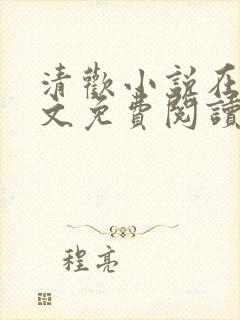 清歡小説在
文免費閱讀
程亮